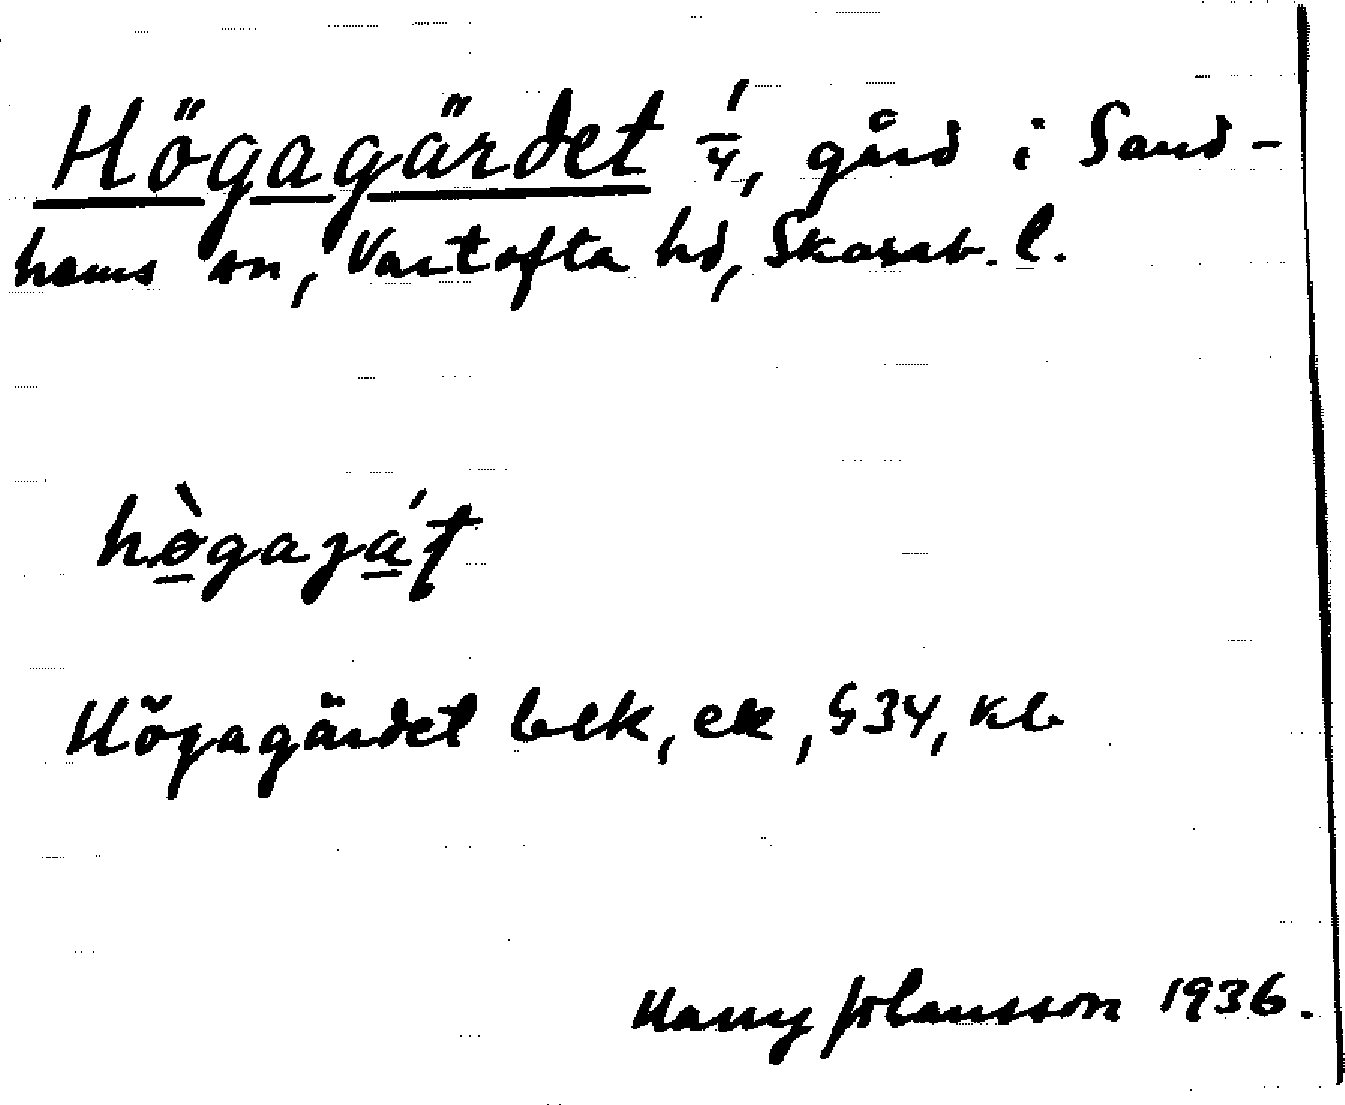 Högagärdet 1/4, gård i Sand-
hems sn, Vartofta hd, Skarab. l.
hògaját
Högagärdet blk, ek, G34, Kb
Harry Johansson 1936.